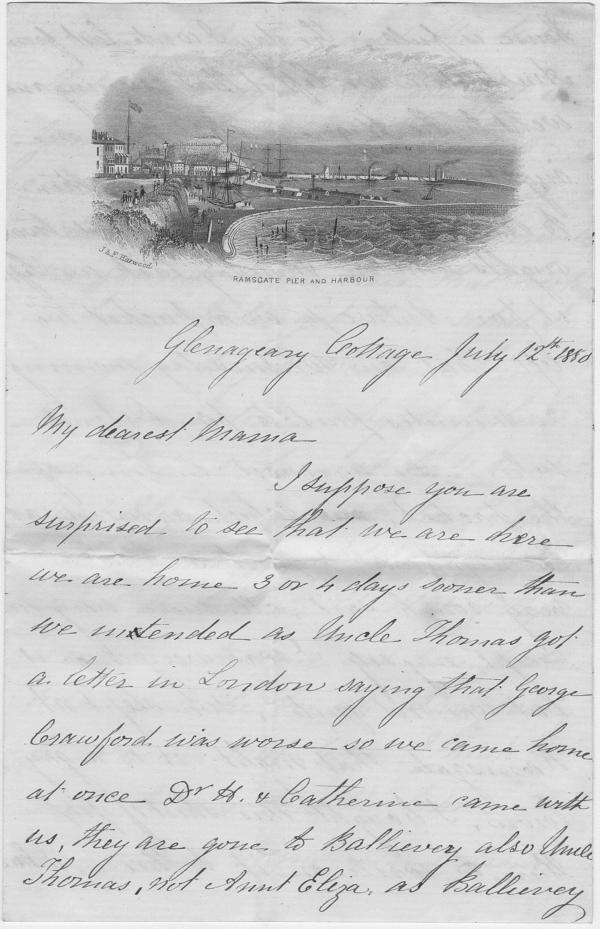 J & F Harwood
RAMSGATE PIER AND HARBOUR
Glenageary Cottage July 12th 1850
My dearest Mama
I suppose you are
surprised to see that we are here
we are home 3 or 4 days sooner than
we intended as Uncle Thomas got
a letter in London saying that George
Crawford was worse so we came home
at once Dr H. & Catherine came with
us, they are gone to Ballievey also Uncle
Thomas, not Aunt Eliza, as Ballievey